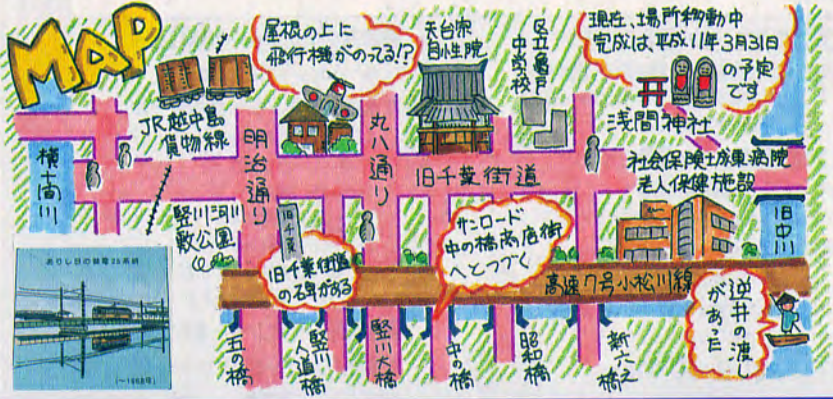 MAP
屋根の上に
飛行機がのってる!?
天台宗
自性院
区立亀戸
中学校
現在、場所移動中
完成は、平成11年3月31日
の予定
です
浅間神社
JR越中島
貨物線
明治通り
丸八通り
旧千葉街道
社会保険城東病院
老人保健施設
横十間川
旧中川
竪川河川
敷公園
旧千葉
旧千葉街道
の碑がある
サンロード
中の橋商店街
へとつづく
高速7号小松川線
逆井の渡し
があった
ありし日の都電25系統
五の橋
竪川
人道橋
竪川大橋
中の橋
昭和橋
新六之橋